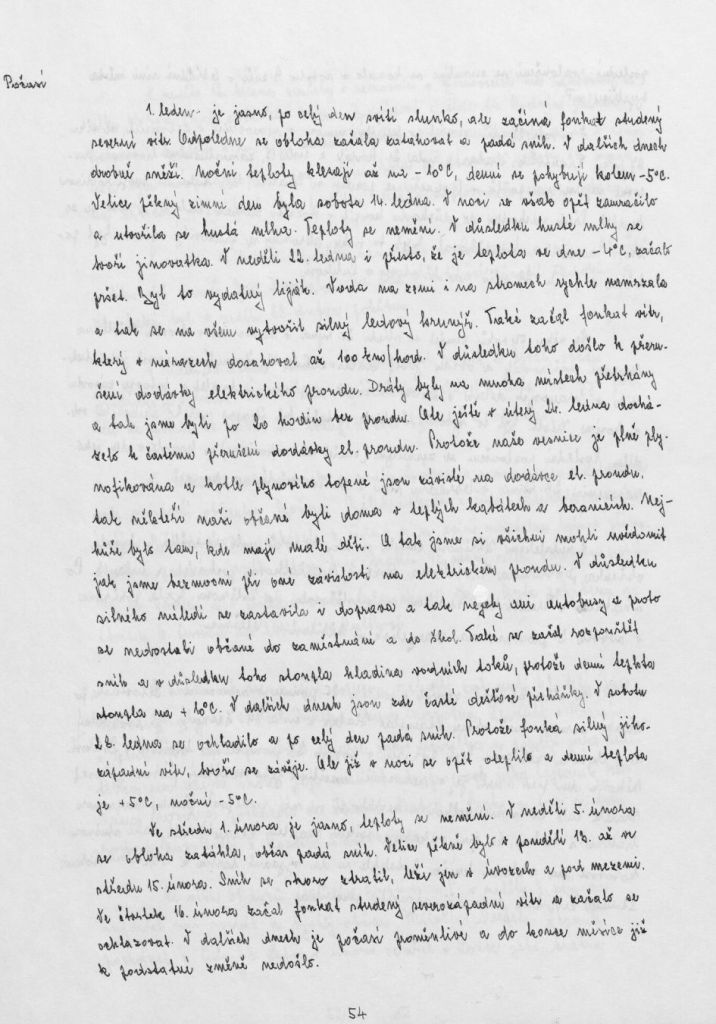 Počasí
1. leden - je jasno, po celý den svítí slunko, ale začíná foukat studený
severní vítr. Odpoledne se obloha začala zatahovat a padá sníh. V dalších dnech
drobně sněží. Noční teploty klesají až na -10°C, denní se pohybují kolem -5°C.
Velice pěkný zimní den byla sobota 14. ledna. V noci se však opět zamračilo
a utvořila se hustá mlha. Teploty se nemění. V důsledku husté mlhy se
tvoří jinovatka. V neděli 22. ledna i přesto, že je teplota ve dne -4°C, začalo
pršet. Byl to vydatný liják. Voda na zemi i na stromech rychle namrzala
a tak se na všem vytvořil silný ledový krunýř. Také začal foukat vítr,
který v nárazech dosahoval až 100 km/hod. V důsledku toho došlo k přeru-
šení dodávky elektrického proudu. Dráty byly na mnoha místech přetrhány
a tak jsme byli po 20 hodin bez proudu. Ale ještě v úterý 24. ledna dochá-
zelo k častému přerušení dodávky el. proudu. Protože naše vesnice je plně ply-
nofikována a kotle plynového topení jsou závislé na dodávce el. proudu,
tak někteří naši občané byli doma v teplých kabátech a beranicích. Nej-
hůře bylo tam, kde mají malé děti. A tak jsme si všichni mohli uvědomit
jak jsme bezmocní při oné závislosti na elektrickém proudu. V důsledku
silného náledí se zastavila i doprava a tak nejely ani autobusy a proto
se nedostali občané do zaměstnání a do škol. Také se začal rozpouštět
sníh a v důsledku toho stoupla hladina vodních toků, protože denní teplota
stoupla na +10°C. V dalších dnech jsou zde časté dešťové přeháňky. V sobotu
28. ledna se ochladilo a po celý den padá sníh. Protože fouká silný jiho-
západní vítr, tvoří se závěje. Ale již v noci se opět oteplilo a denní teplota
je +5°C, noční -5°C.
Ve středu 1. února je jasno, teploty se nemění. V neděli 5. února
se obloha zatáhla, občas padá sníh. Velice pěkně bylo v pondělí 13. až ve
středu 15. února. Sníh se skoro ztratil, leží jen v úvozech a pod mezemi.
Ve čtvrtek 16. února začal foukat studený severozápadní vítr a začalo se
ochlazovat. V dalších dnech je počasí proměnlivé a do konce měsíce již
k podstatné změně nedošlo.
54